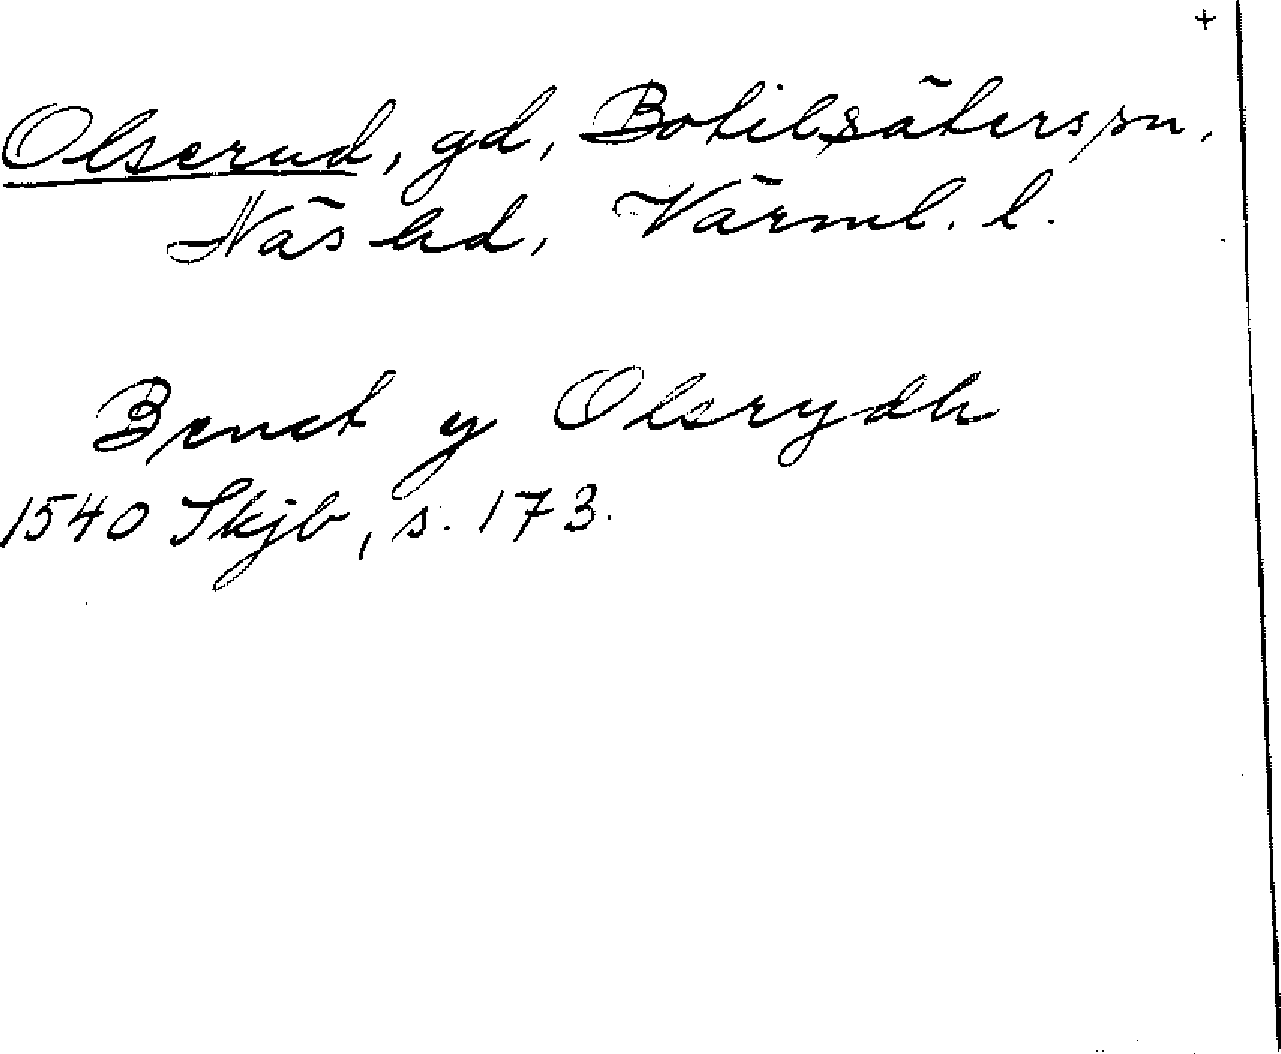 +
Olserud, gd, Botilsäters sn,
Näs hd, Värml. l.
Benct y Olsrydh
1540 Skjb, s. 173.